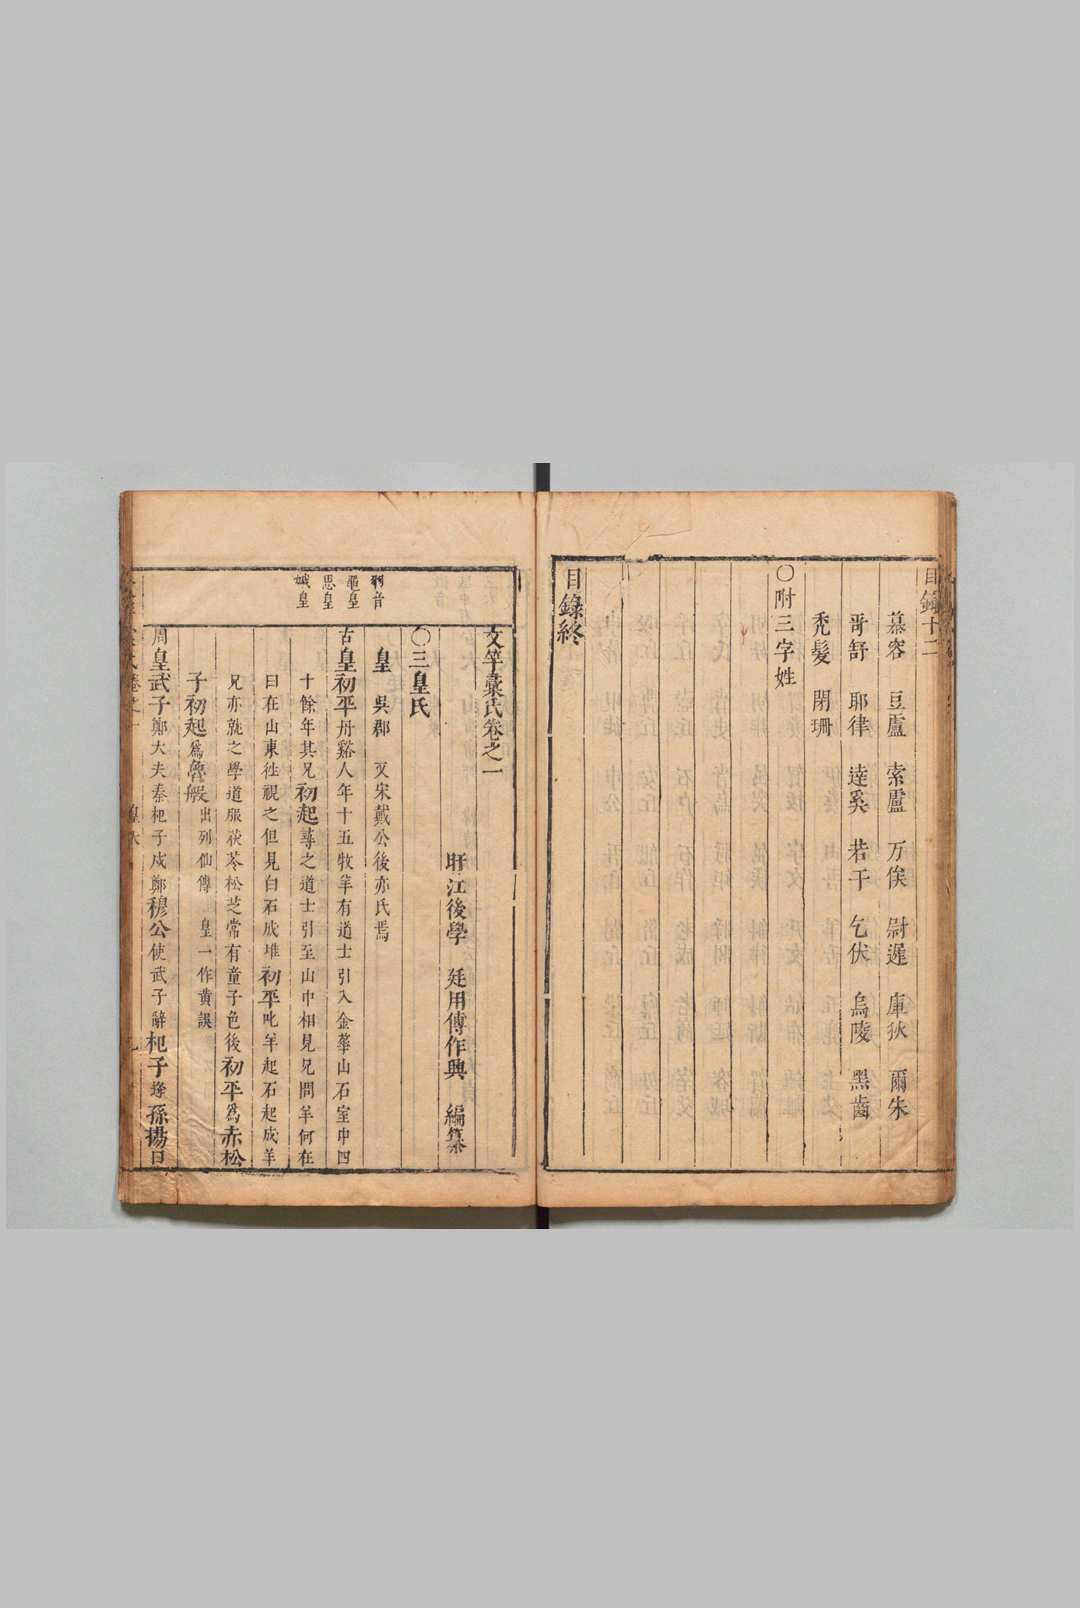 目錄十二
慕容 豆盧 索盧 万俟 尉遲 庫狄 爾朱
哥舒 耶律 達奚 若干 乞伏 烏陵 黑齒
禿髮 閉珊
〇附三字姓
目錄終
文竿彙氏卷之一
盱江後學 廷用傅作興 編纂
〇三皇氏
皇 吳郡 又宋戴公後亦氏焉
羽音
黽皇
思皇
媙皇
古皇初平丹谿人年十五牧羊有道士引入金華山石室中四
十餘年其兄初起尋之道士引至山中相見兄問羊何在
曰在山東徃視之但見白石成堆初平叱羊起石起成羊
兄亦就之學道服茯苓松芝常有童子色後初平爲赤松
子初起爲魯般出列仙傳 皇一作黄誤
周皇武子鄭大夫秦杞子戍鄭穆公使武子辭杞子逢孫揚曰